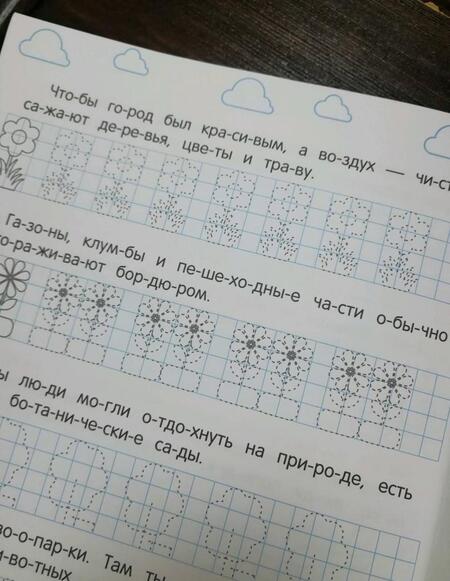 Что-бы го-род был кра-си-вым, а во-здух — чи-ст
са-жа-ют де-ре-вья, цве-ты и тра-ву.
Га-зо-ны, клум-бы и пе-ше-хо-дны-е ча-сти о-бы-чно
го-ра-жи-ва-ют бор-дю-ром.
ы лю-ди мо-гли о-тдо-хнуть на при-ро-де, есть
бо-та-ни-че-ски-е са-ды.
во-о-пар-ки. Там ты
и-во-тных